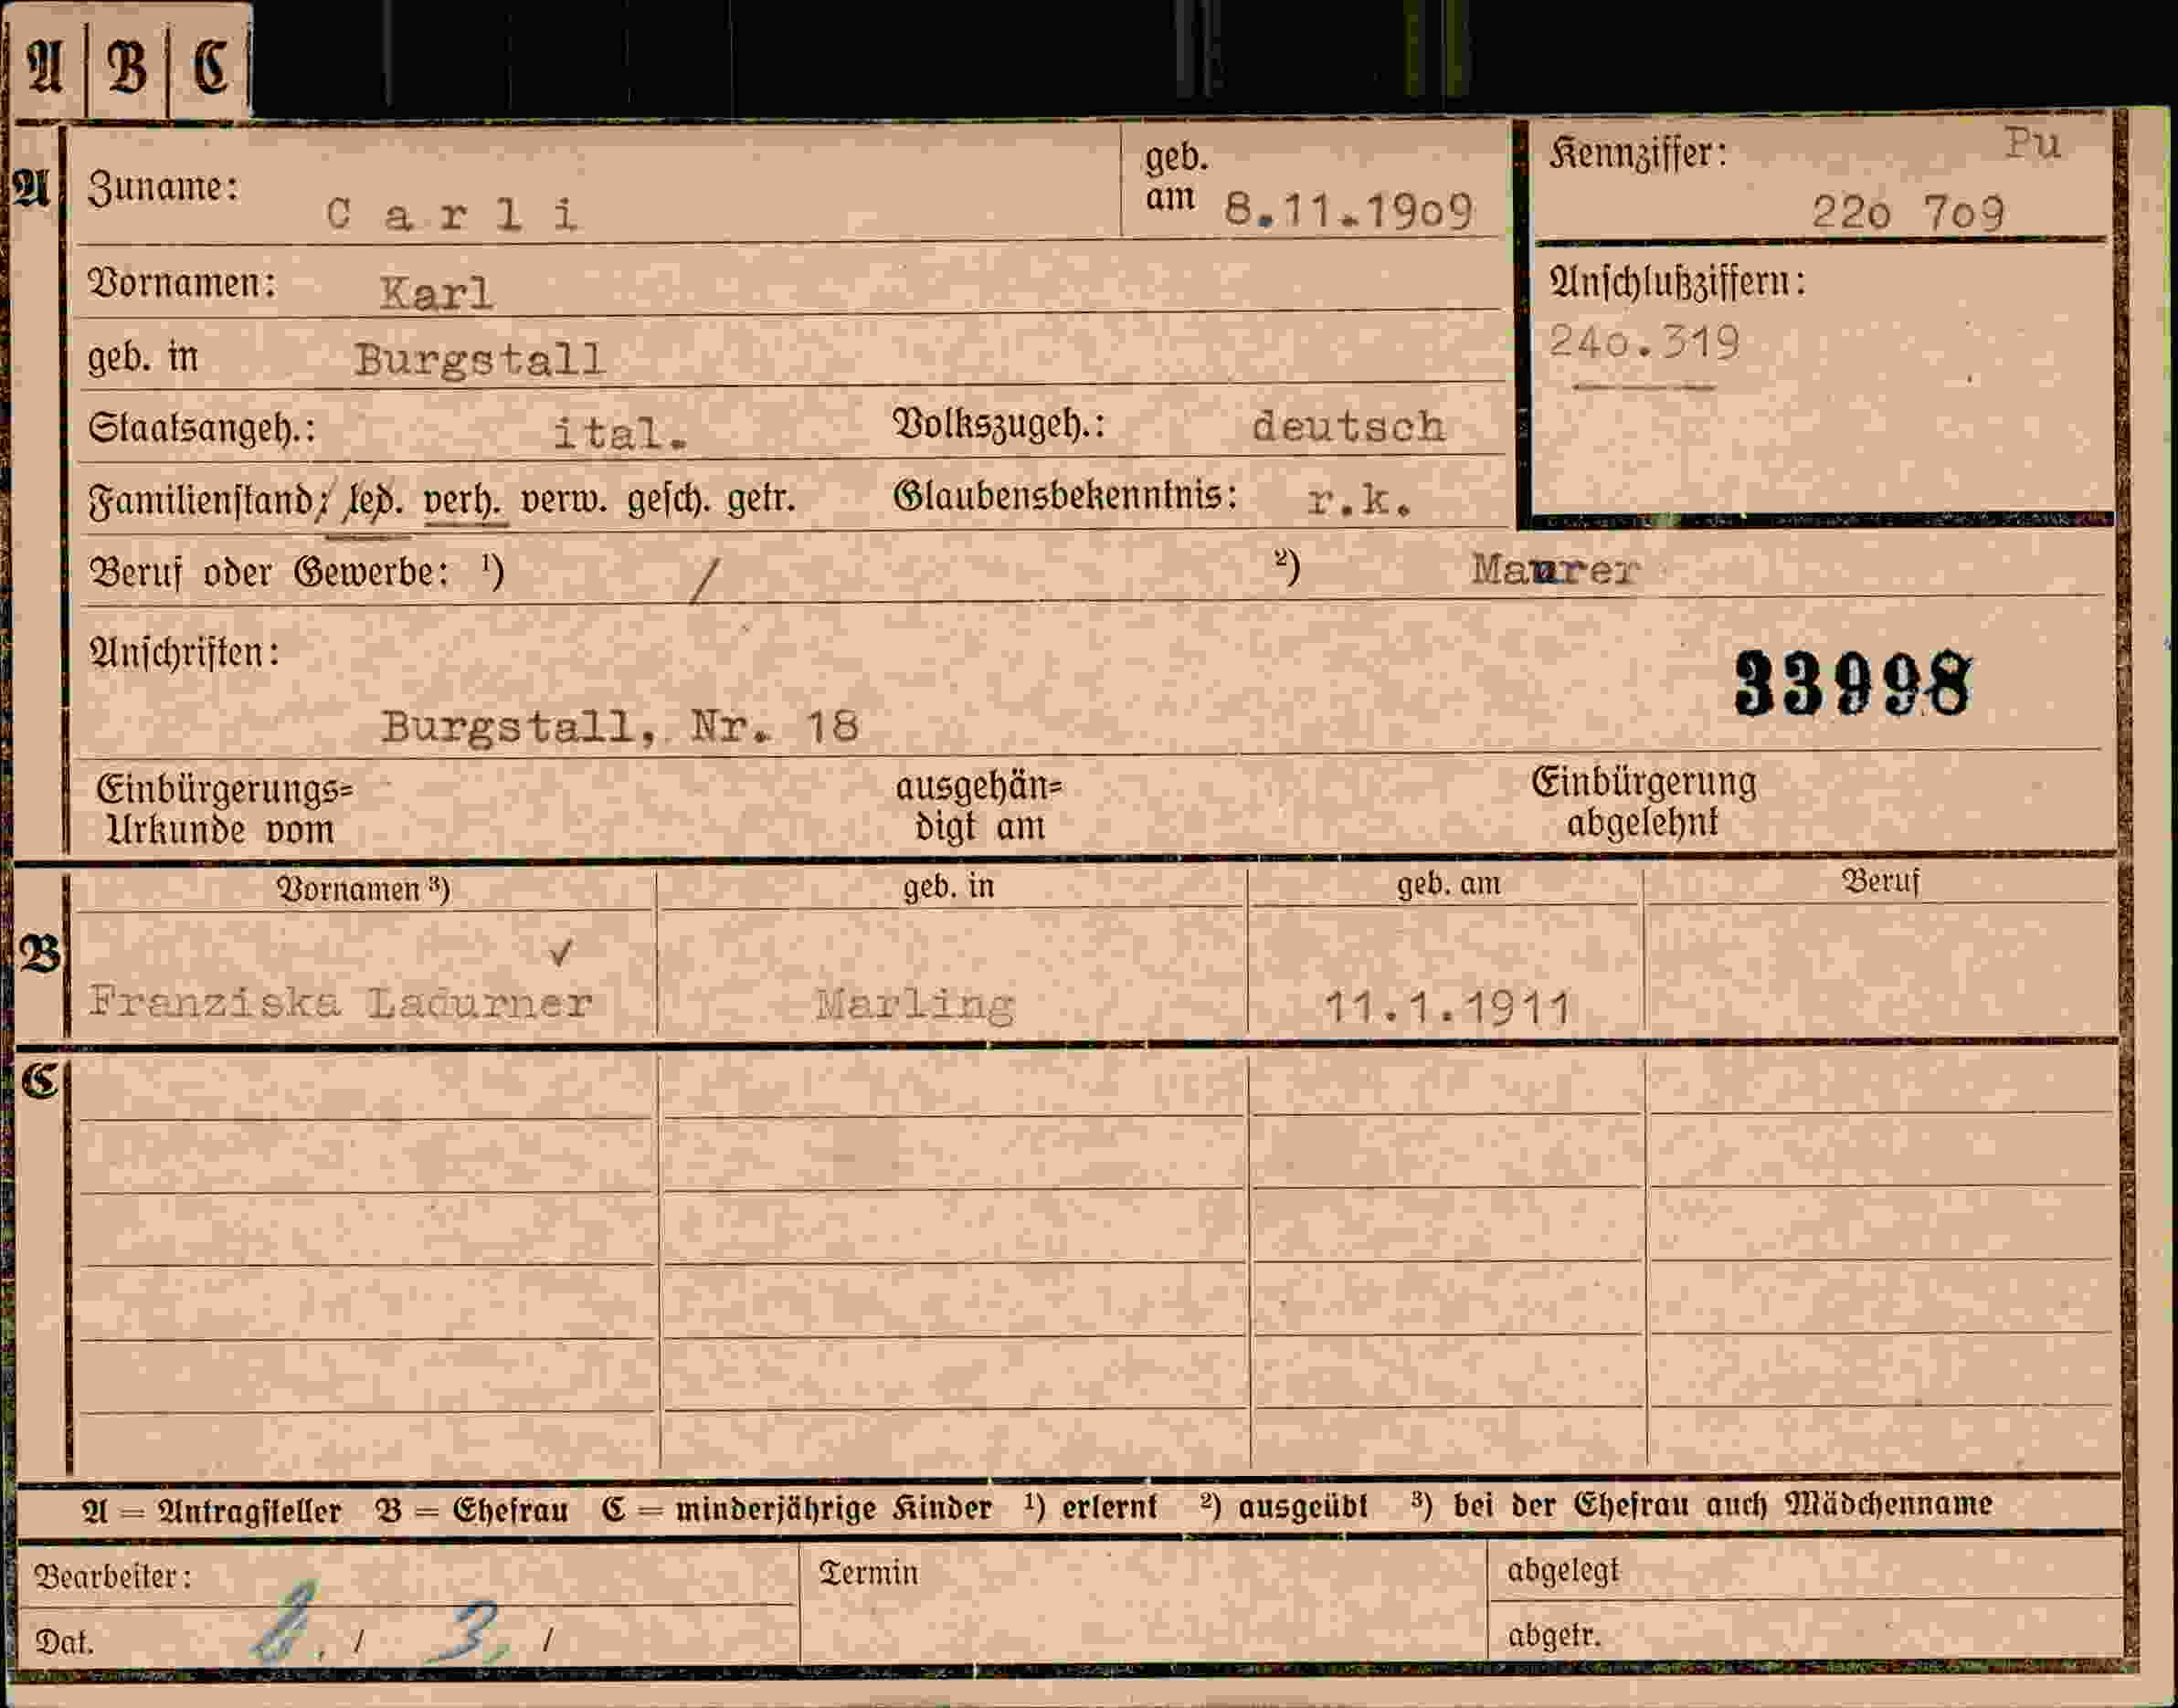 A B C
A Zuname: Carli geb. am 8.11.1909
Kennziffer: Pu
220 709
Vornamen: Karl
Anschlußziffern:
240.319
geb. in Burgstall
Staatsangeh.: ital. Volkszugeh.: deutsch
Familienstand: led. verh. verw. gesch. getr. Glaubensbekenntnis: r.k.
Beruf oder Gewerbe: ¹) / ²) Maurer
Anschriften:
33998
Burgstall, Nr. 18
Einbürgerungs= ausgehän= Einbürgerung
Urkunde vom digt am abgelehnt
Vornamen ³) geb. in geb. am Beruf
B
Franziska Ladurner ✓ Marling 11.1.1911
C
A = Antragsteller B = Ehefrau C = minderjährige Kinder ¹) erlernt ²) ausgeübt ³) bei der Ehefrau auch Mädchenname
Bearbeiter: Termin abgelegt
Dat. 8. / 3. / abgetr.